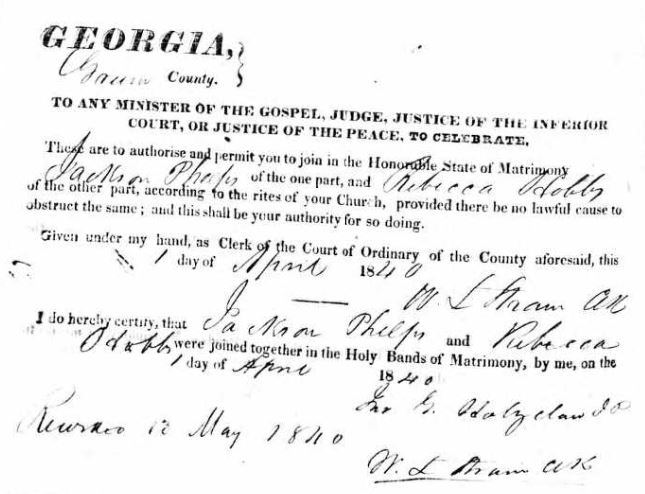 GEORGIA,
County.
TO ANY MINISTER OF THE GOSPEL, JUDGE, JUSTICE OF THE INFERIOR
COURT, OR JUSTICE OF THE PEACE, TO CELEBRATE.
These are to authorise and permit you to join in the Honorable State of Matrimony
Jackson Phelps of the one part, and Rebecca Hobbs
of the other part, according to the rites of your Church, provided there be no lawful cause to
obstruct the same; and this shall be your authority for so doing.
Given under my hand, as Clerk of the Court of Ordinary of the County aforesaid, this
1 day of April 1840
W. L
I do hereby certify, that Jackson Phelps and Rebecca
Hobbs were joined together in the Holy Bands of Matrimony, by me, on the
1 day of April 1840
G.
12 May 1840
W. L